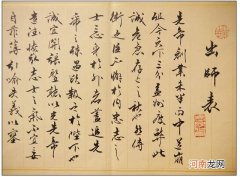 出師表
先帝創業未半而中道崩
殂今天下三分益州疲弊此
誠危急存亡之秋也然侍
衛之臣不懈於内忠志之
士忘身於外者蓋追先
帝之殊遇欲報之於陛下也
誠宜開張聖聽以光先帝
遺德恢弘志士之氣不宜妄
自菲薄引喻失義以塞